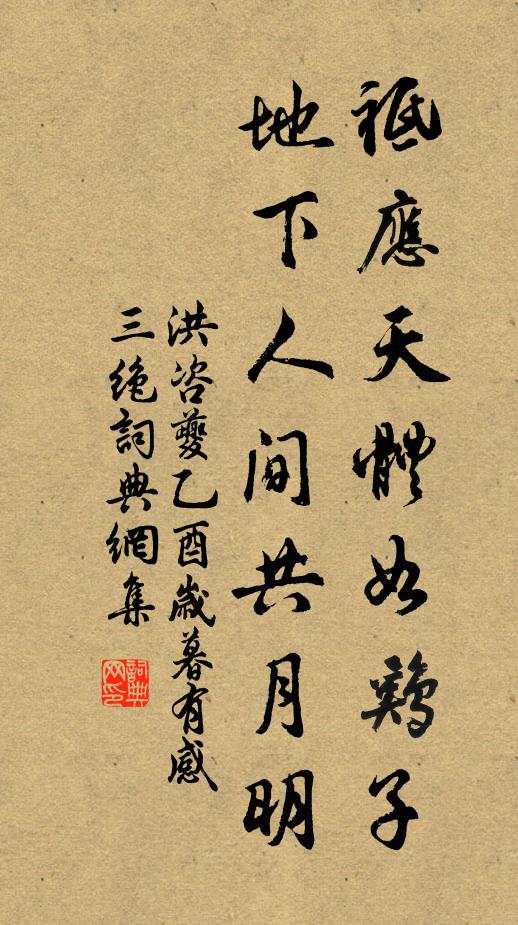 祗應天體如鷄子
地下人間共月明
洪咨夔乙酉歲暮有感
三絕詞典網集
詞典網印